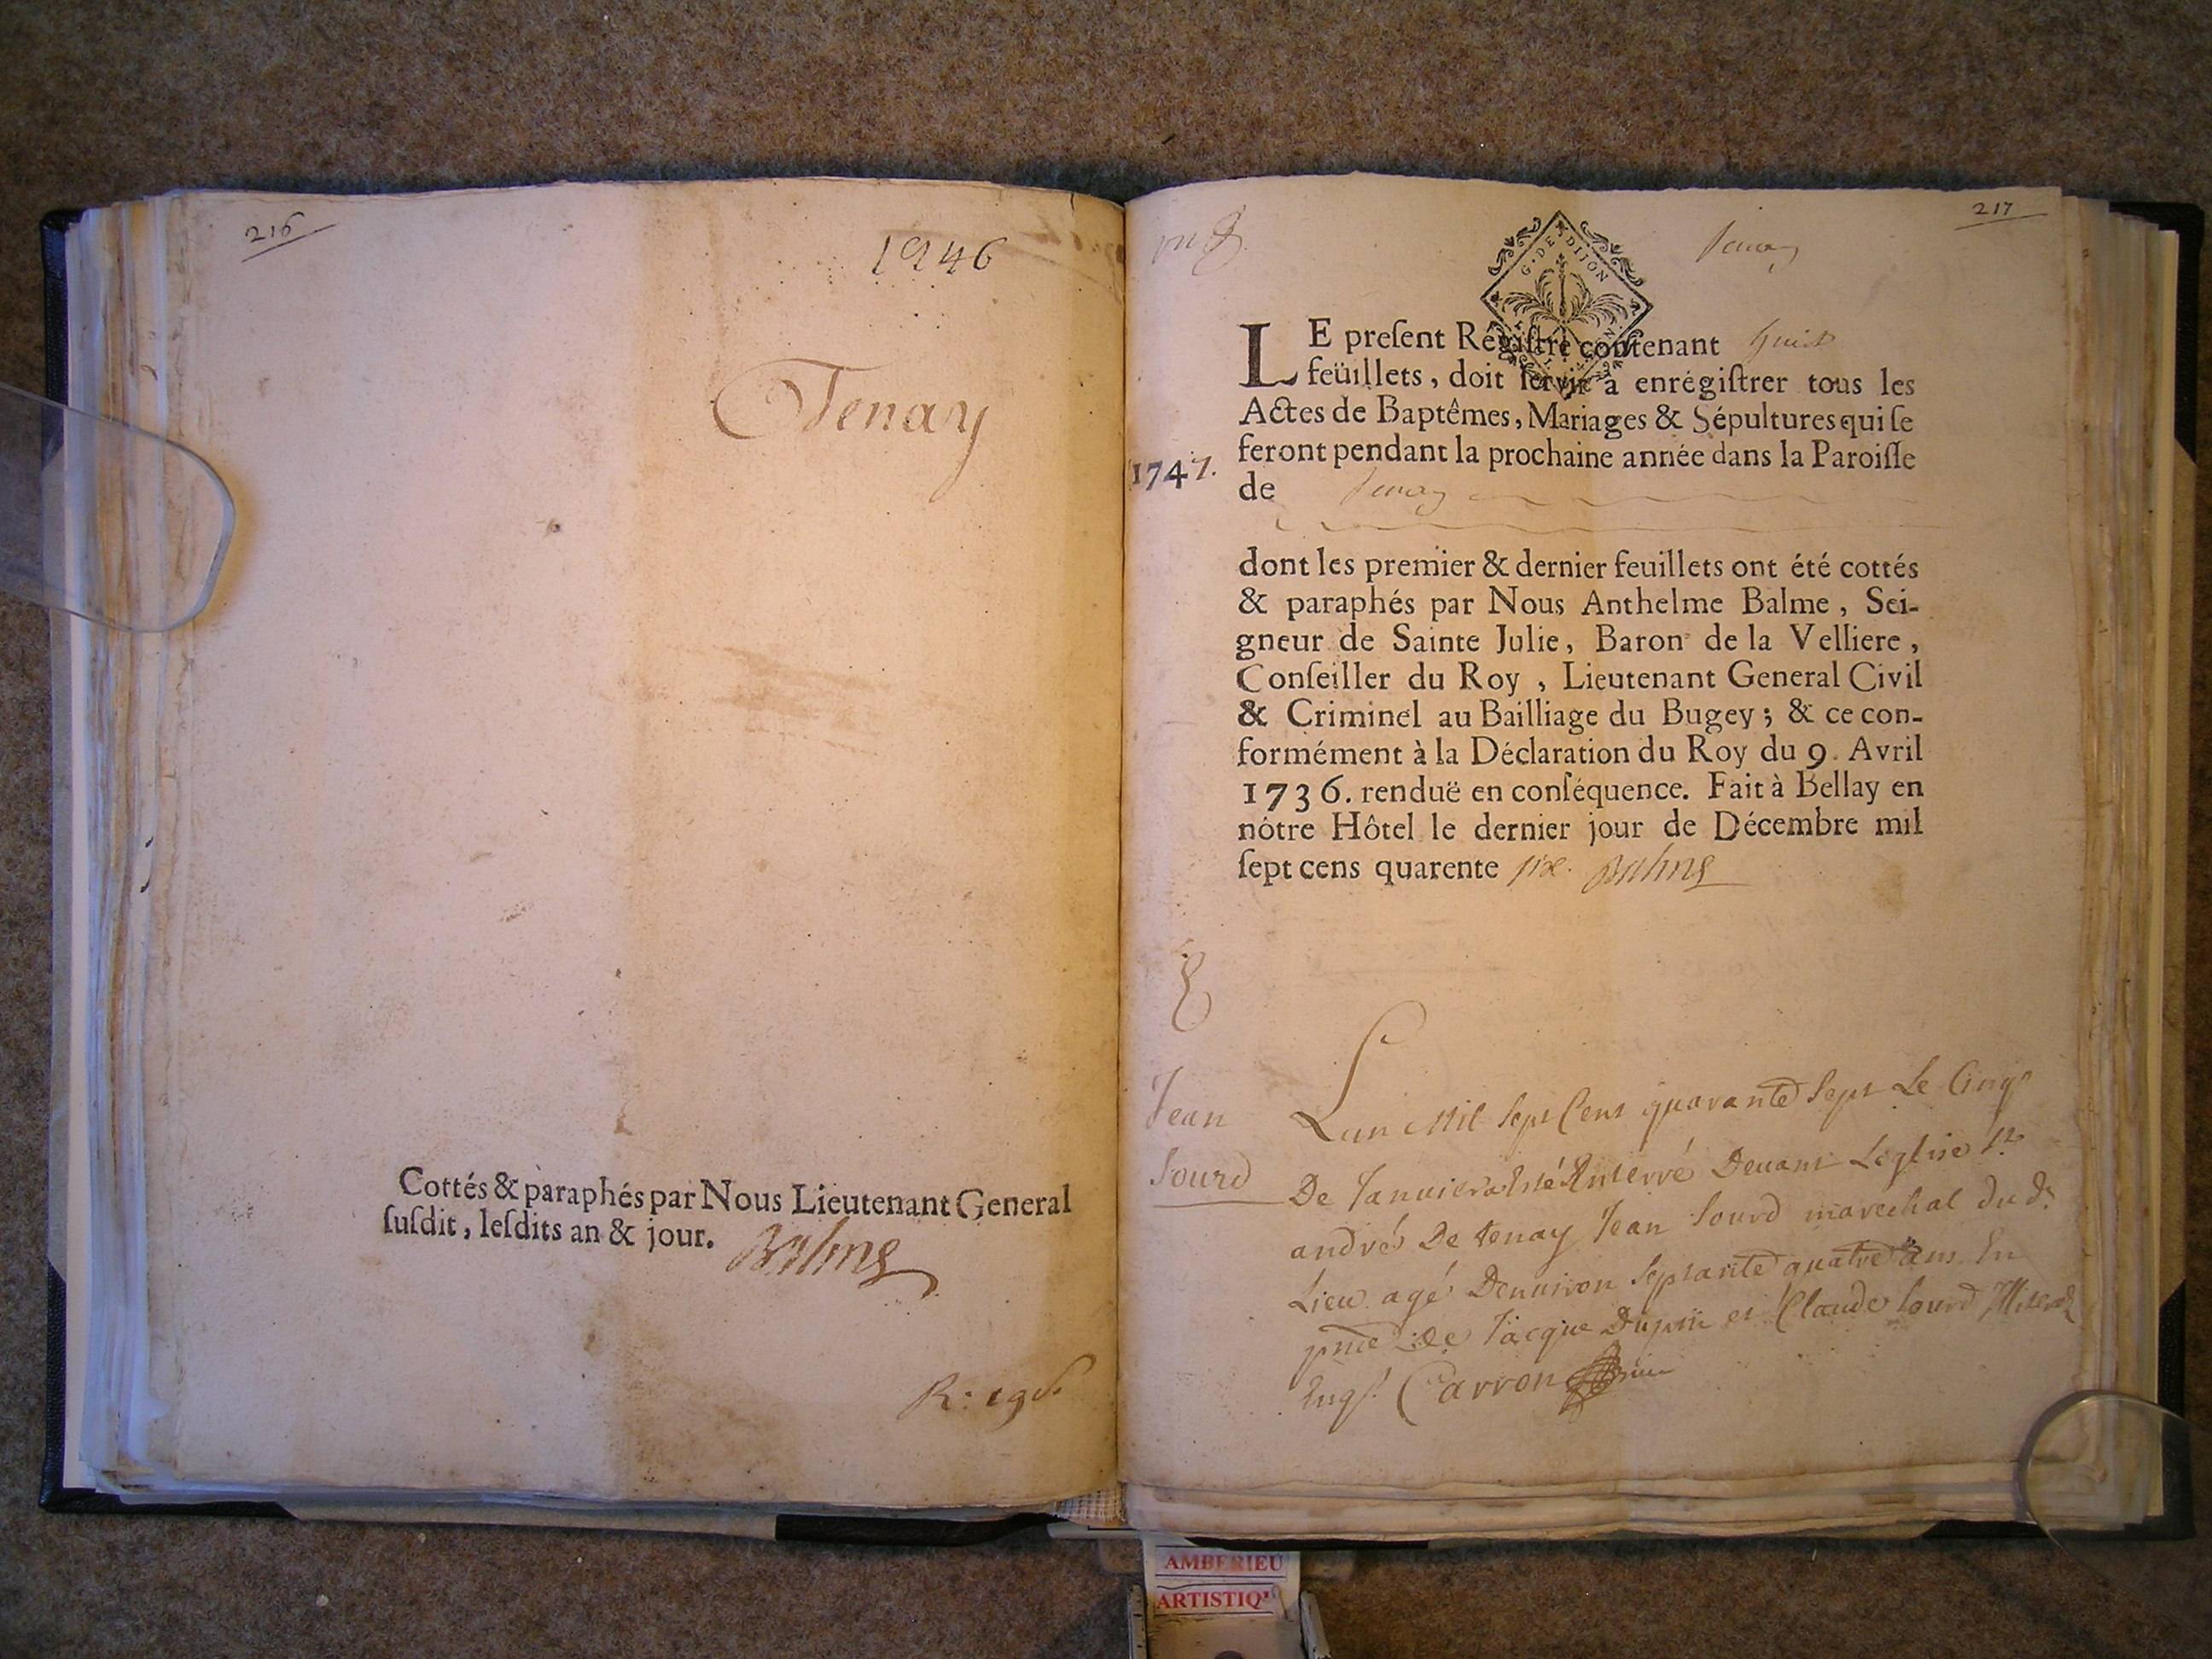 216
1746
Tenay
Cottés & paraphés par Nous Lieutenant General
ſuſdit, leſdits an & jour. Balme
217
Tenay
G · DE DIJON
LE preſent Régiſtre contenant huit
feüillets, doit ſervir à enrégiſtrer tous les
Actes de Baptêmes, Mariages & Sépultures qui ſe
feront pendant la prochaine année dans la Paroiſſe
1747.
de Tenay
dont les premier & dernier feuillets ont été cottés
& paraphés par Nous Anthelme Balme, Sei-
gneur de Sainte Julie, Baron de la Velliere,
Conſeiller du Roy, Lieutenant General Civil
& Criminel au Bailliage du Bugey; & ce con-
formément à la Déclaration du Roy du 9. Avril
1736. renduë en conſéquence. Fait à Bellay en
nôtre Hôtel le dernier jour de Décembre mil
ſept cens quarente six. Balme
Jean
Sourd
Lan Mil Sept Cent quarante Sept Le Cinq
De Januier a Esté Enterré Deuant Leglise St
andré De tenay Jean Sourd marechal du dt
Lieu agé Denuiron Septante quatre ans En
pnce de Jacque Dupui et Claude Sourd Illiteré
Enqs. Carron
AMBERIEU
ARTISTIQ